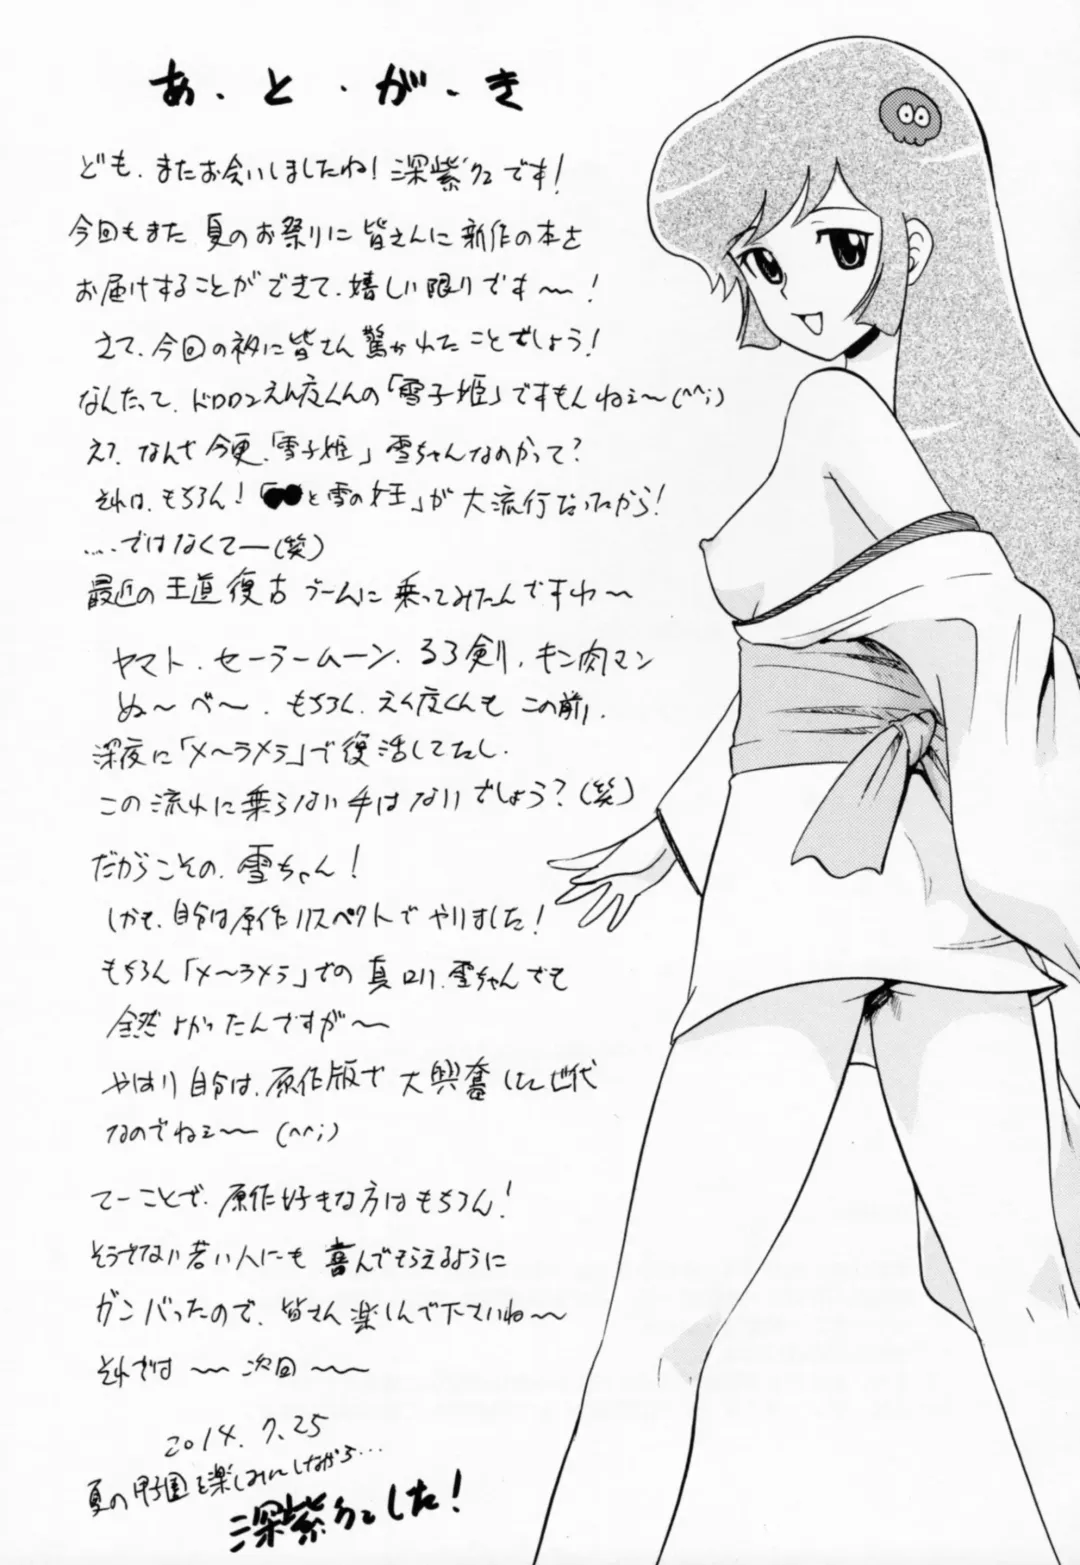 あ・と・が・き
ども、またお会いしましたね！深紫クニです！
今回もまた 夏のお祭りに 皆さんに 新作の本を
お届けすることができて、嬉しい限りです〜！
さて、今回のネタに皆さん驚かれたことでしょう！
なんたって、ドロロンえん魔くんの「雪子姫」ですもんねェ〜(^^;)
え？なんで 今更、「雪子姫」雪ちゃんなのかって？
それは、もちろん！「●●と雪の女王」が 大流行だったから！
....ではなくてー(笑)
最近の王道復古ブームに 乗ってみたんですわ〜
ヤマト、セーラームーン、るろ剣、キン肉マン
ぬ〜べ〜、もちろん、えん魔くんも この前、
深夜に「メ〜ラメラ」で復活してたし、
この流れに乗らない手はないでしょう？(笑)
だからこその、雪ちゃん！
しかも、自分は原作リスペクトで やりました！
もちろん「メ〜ラメラ」での 真ロリ 雪ちゃんでも
全然よかったんですが〜
やはり自分は、原作版で 大興奮した世代
なのでねェ〜 (^^;)
てーことで、原作好きな方はもちろん！
そうでない若い人にも 喜んでもらえるように
ガンバったので、皆さん楽しんで下さいね〜
それでは 〜 次回 〜
2014.7.25
夏の甲子園を楽しみにしながら…
深紫クニでした！